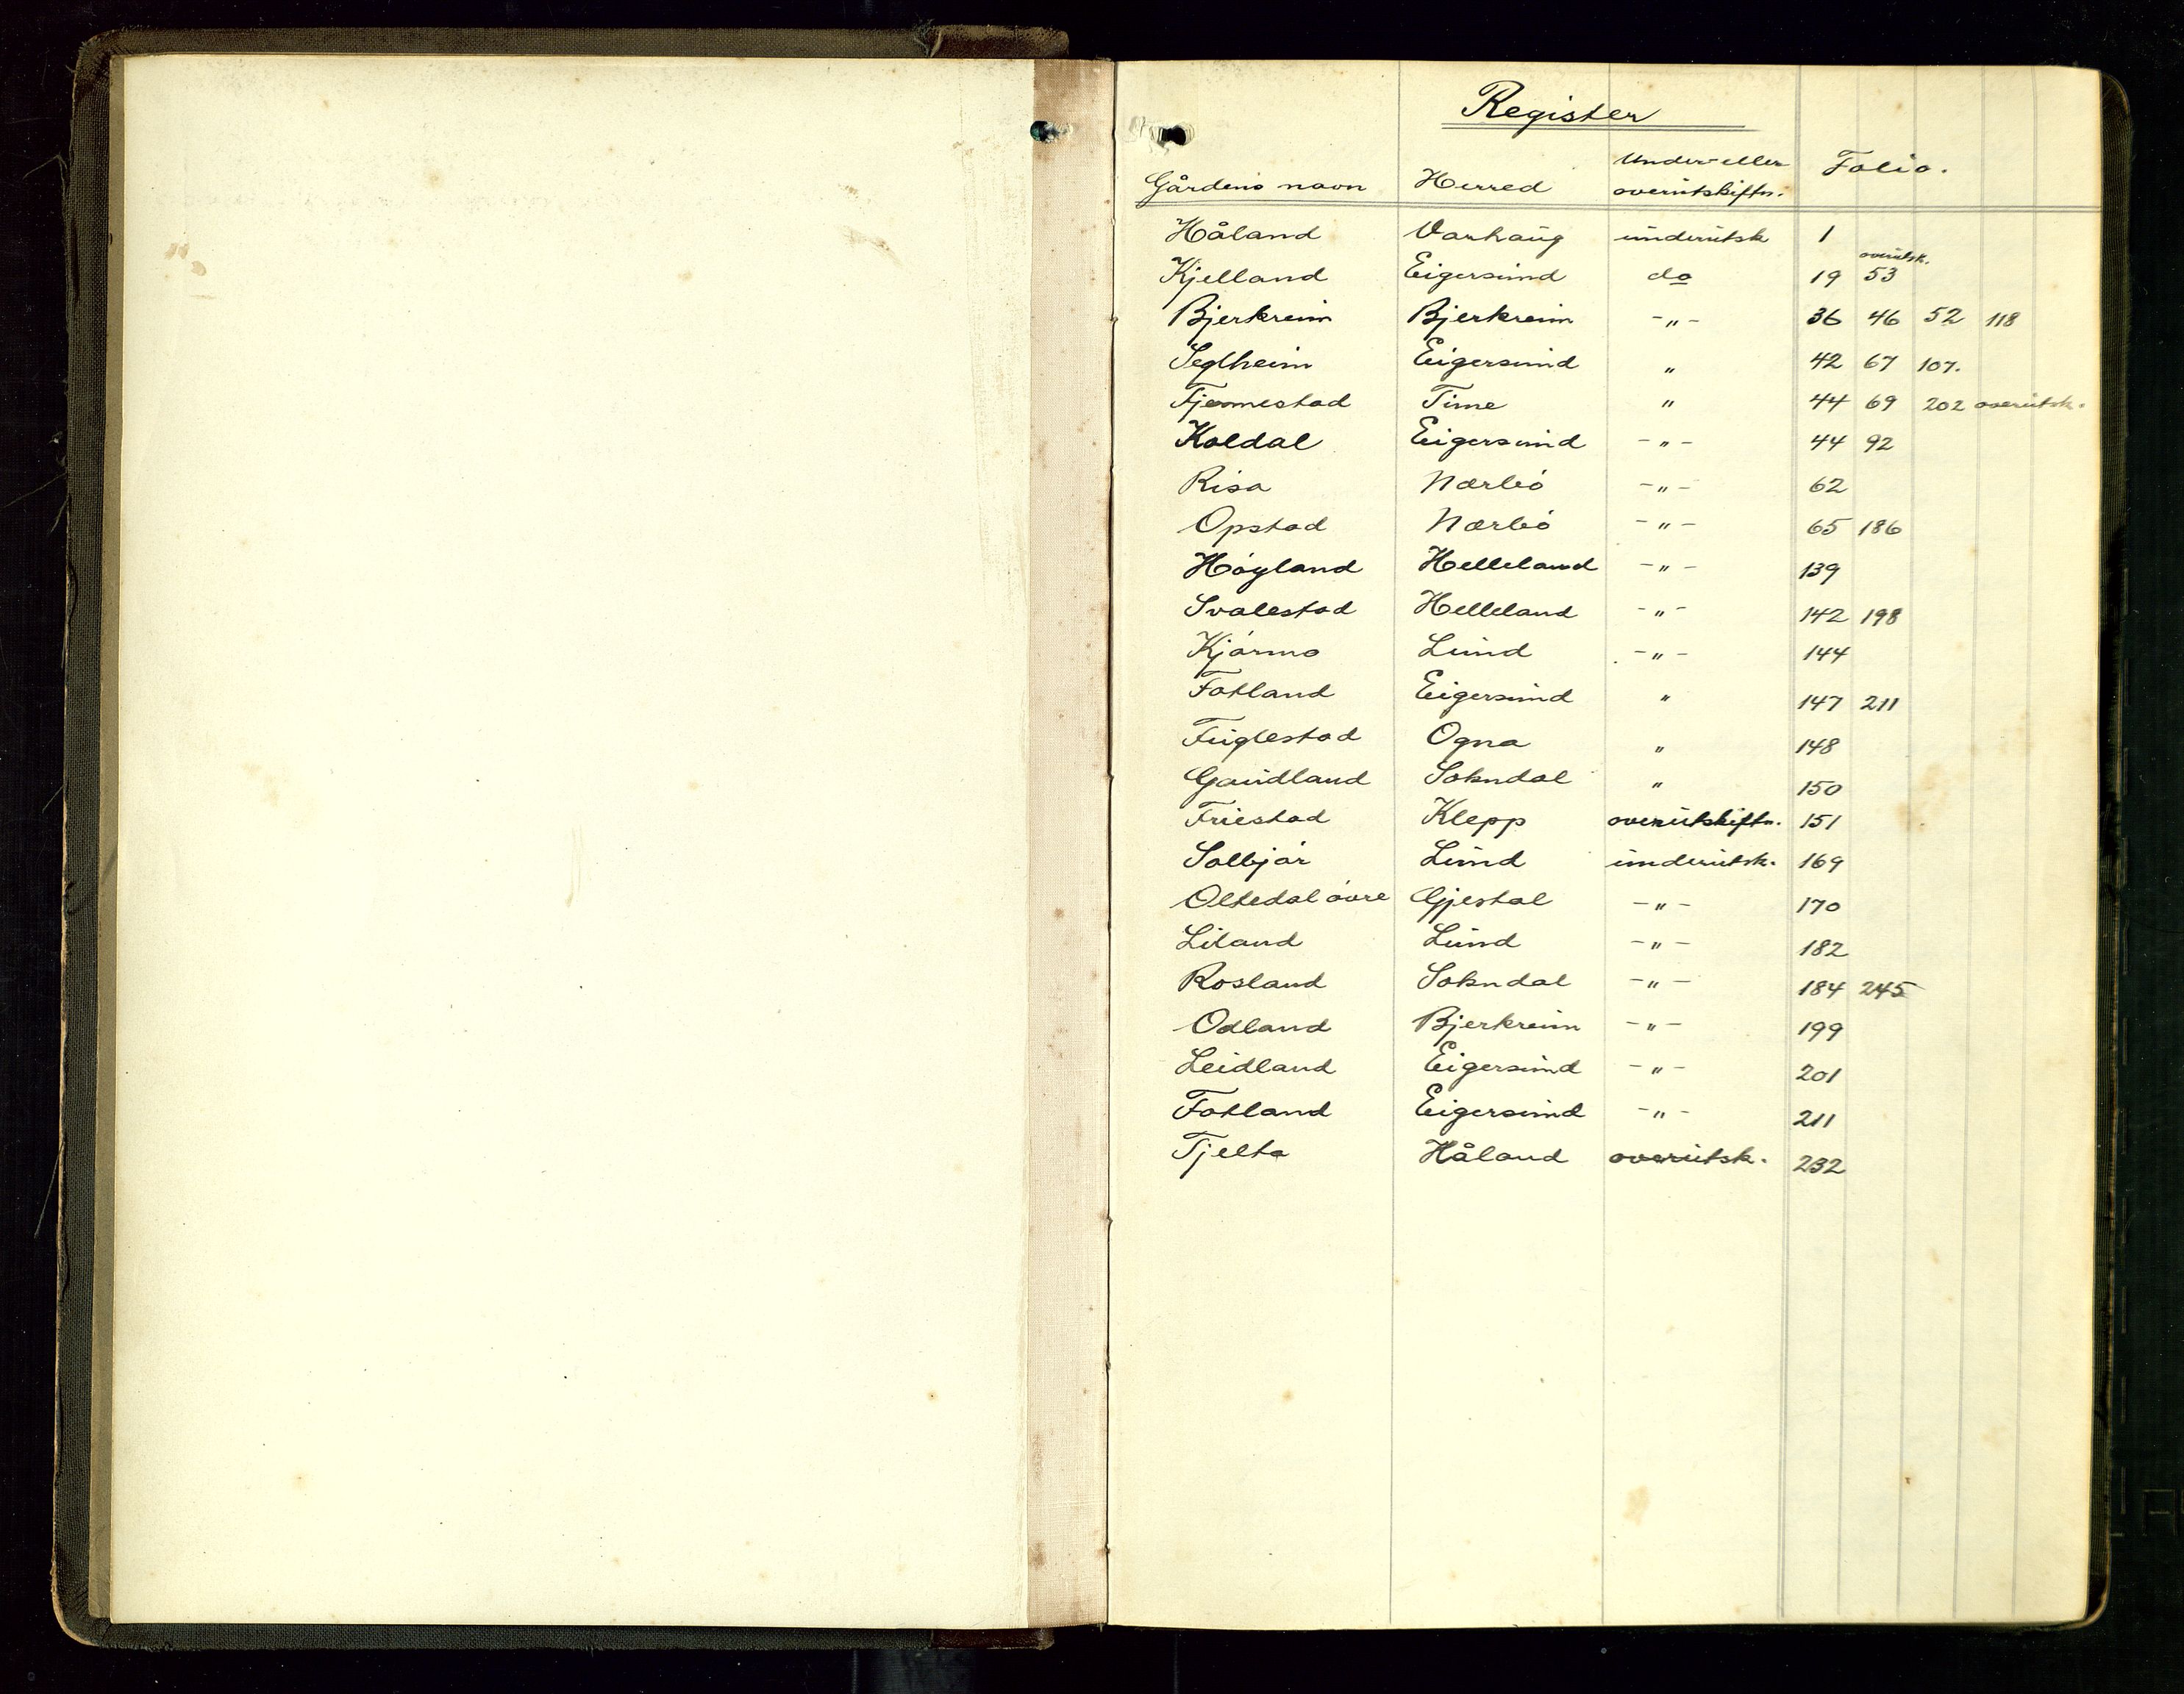 Register
Gårdens navn Herred Under- eller overutskiftn. Folio.
Håland Varhaug underutsk 1
Kjelland Eigersund do 19 overutsk. 53
Bjerkreim Bjerkreim -"- 36 46 52 118
Seglheim Eigersund " 42 67 107.
Fjermestad Time " 44 69 202 overutsk.
Koldal Eigersund -"- 44 92
Risa Nærbö -"- 62
Opstad Nærbö -"- 65 186
Höyland Helleland -"- 139
Svalestad Helleland -"- 142 198
Kjörmo Lund -"- 144
Fotland Eigersund " 147 211
Fuglestad Ogna " 148
Gaudland Sokndal " 150
Friestad Klepp overutskiftn. 151
Solbjör Lund underutsk. 169
Oltedal övre Gjestal -"- 170
Liland Lund -"- 182
Rosland Sokndal -"- 184 245
Odland Bjerkreim -"- 199
Leidland Eigersund -"- 201
Fotland Eigersund -"- 211
Tjelta Håland overutsk. 232